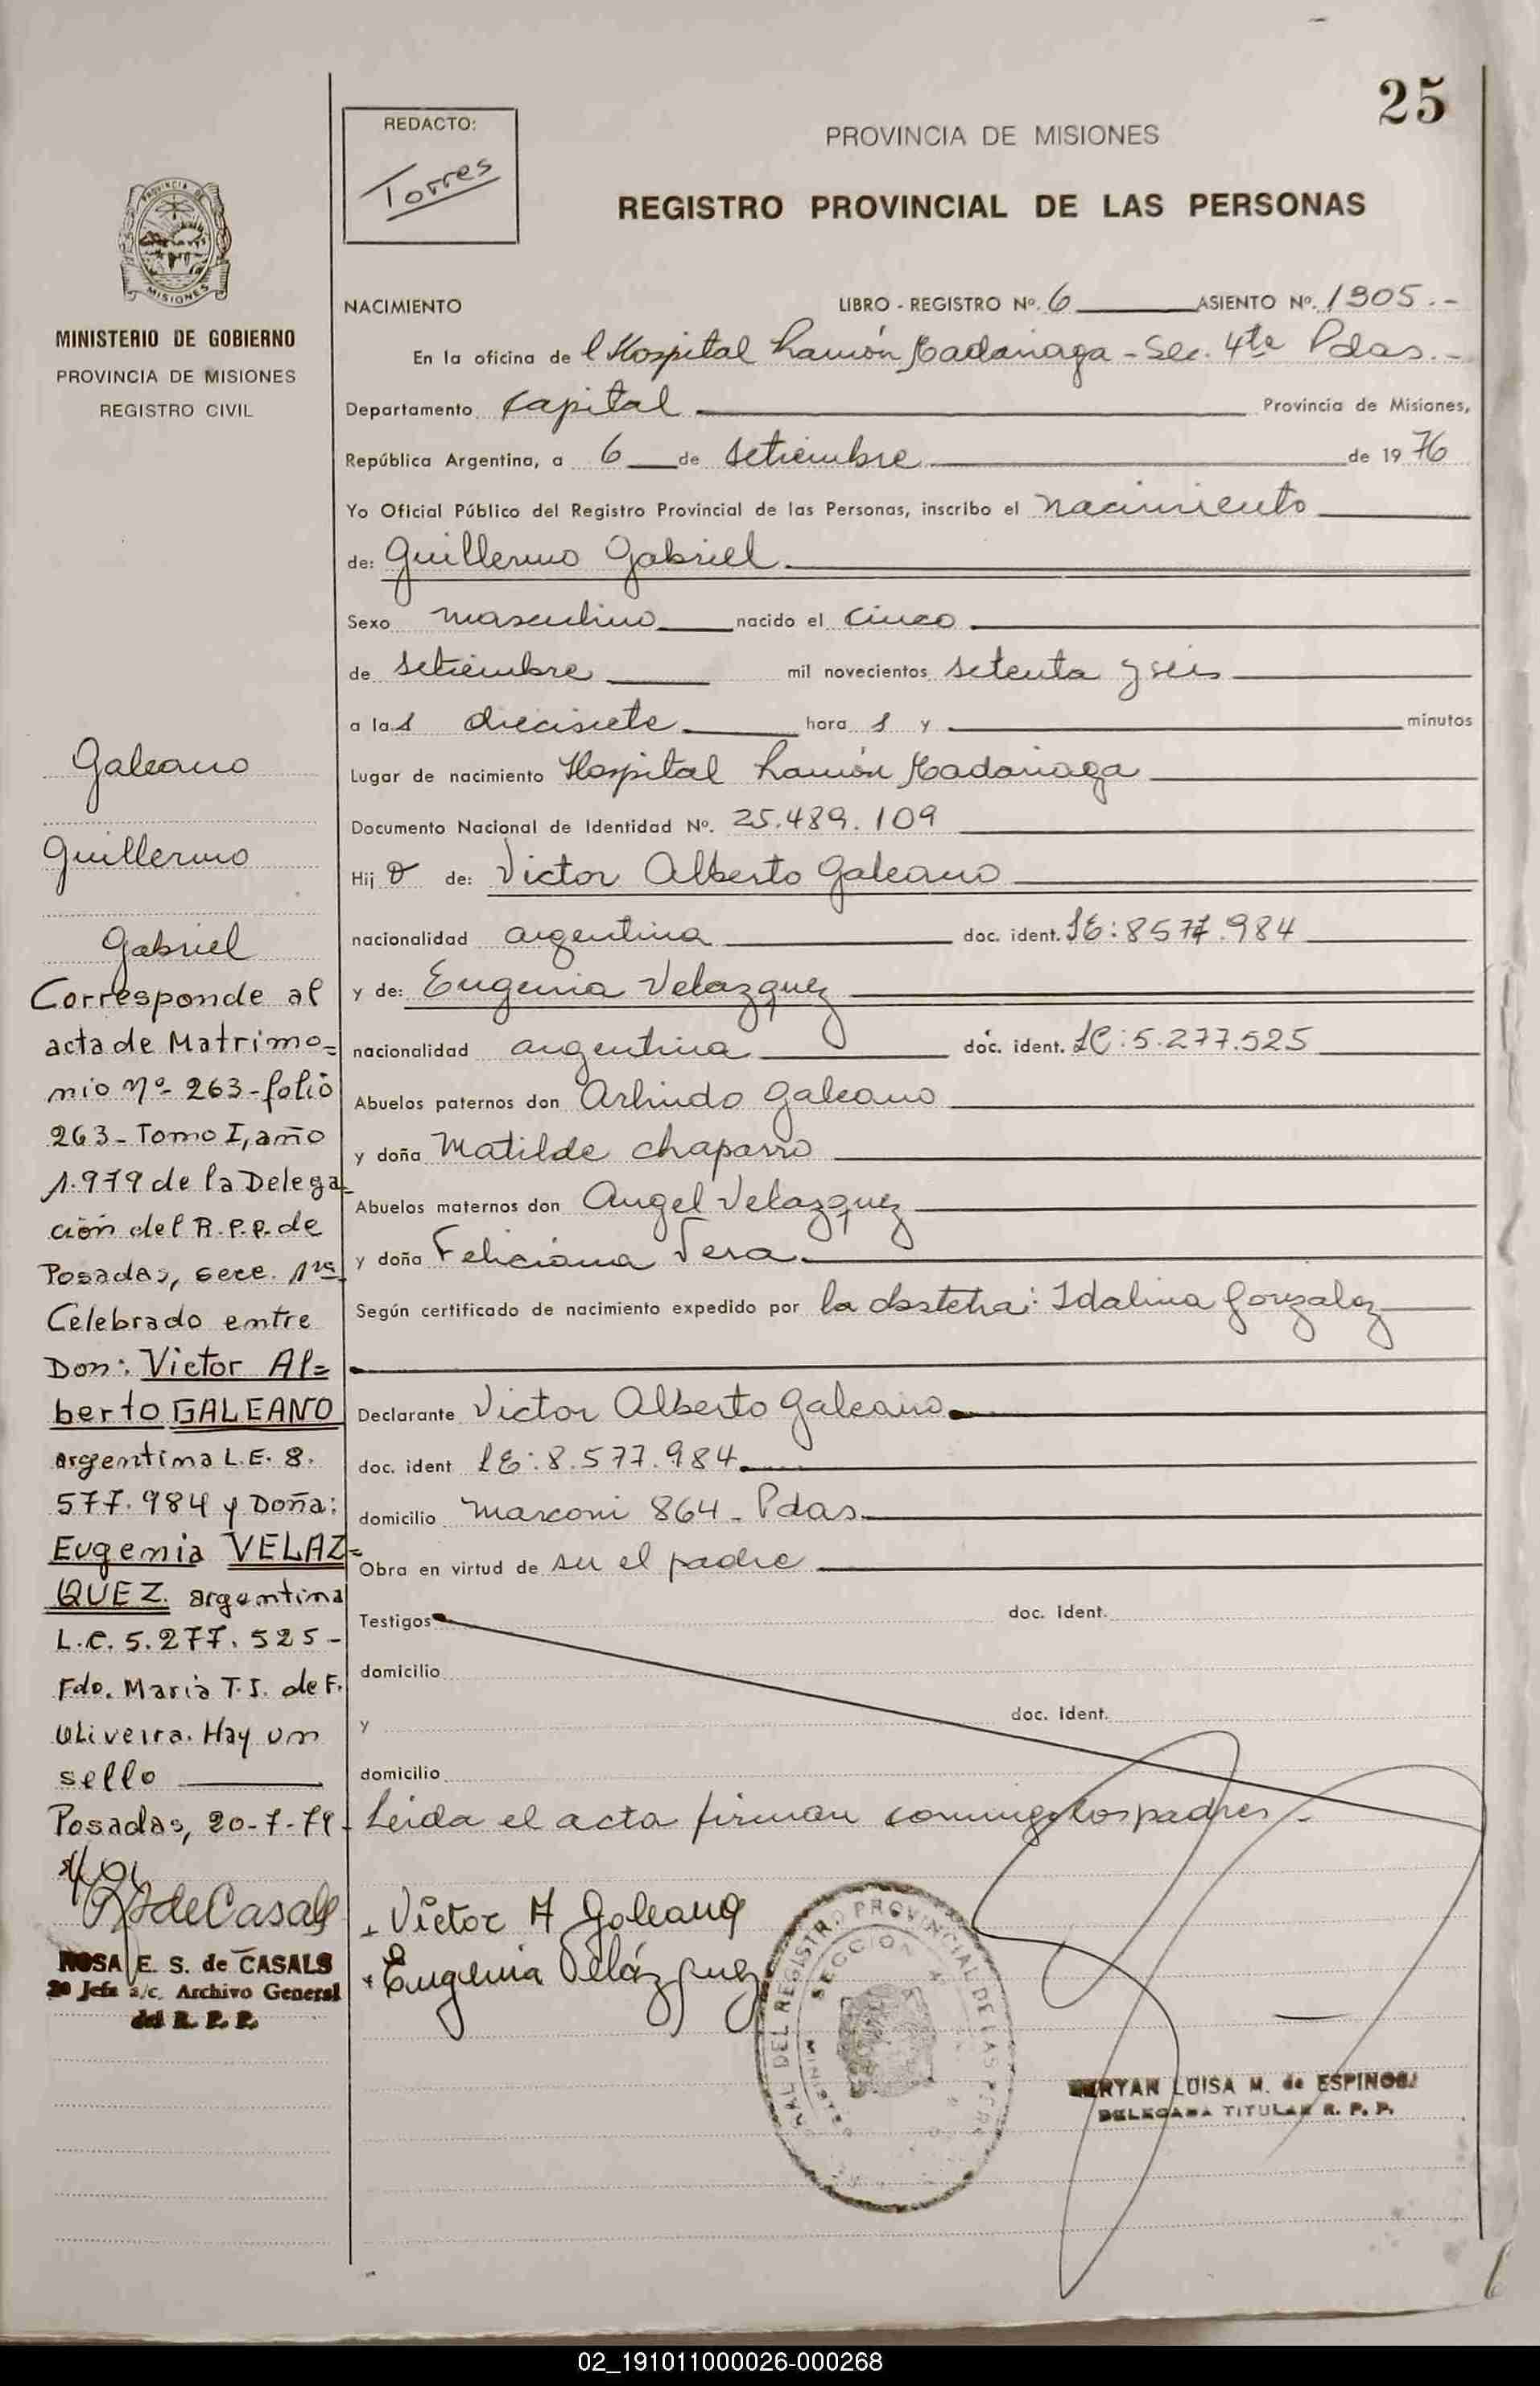 25
REDACTO:
Torres
PROVINCIA DE MISIONES
REGISTRO PROVINCIAL DE LAS PERSONAS
PROVINCIA DE
MISIONES
MINISTERIO DE GOBIERNO
PROVINCIA DE MISIONES
REGISTRO CIVIL
NACIMIENTO LIBRO - REGISTRO Nº. 6 ASIENTO Nº. 1305.-
En la oficina de l Hospital Ramón Madariaga - Sec. 4ta Pdas.-
Departamento Capital Provincia de Misiones,
República Argentina, a 6 de setiembre de 1976
Yo Oficial Público del Registro Provincial de las Personas, inscribo el nacimiento
de: Guillermo Gabriel.
Sexo masculino nacido el cinco
de setiembre mil novecientos setenta y seis
a las diecisiete hora s y minutos
Lugar de nacimiento Hospital Ramón Madariaga
Documento Nacional de Identidad Nº. 25.489.109
Hijo de: Victor Alberto Galeano
nacionalidad argentina doc. ident. LE: 8577.984
y de: Eugenia Velazquez
nacionalidad argentina doc. ident. LC: 5.277.525
Abuelos paternos don Arlindo Galeano
y doña Matilde Chaparro
Abuelos maternos don Angel Velazquez
y doña Feliciana Vera.
Según certificado de nacimiento expedido por la obstetra: Idalina Gonzalez
Declarante Victor Alberto Galeano
doc. ident LE: 8.577.984.
domicilio Marconi 864 - Pdas.
Obra en virtud de ser el padre
Testigos doc. ident.
domicilio
y doc. ident.
domicilio
Leida el acta firman conmigo los padres.-
Victor A Galeano
Eugenia Velázquez
Galeano
Guillermo
Gabriel
Corresponde al
acta de Matrimo=
nio Nº 263-folio
263-Tomo I, año
1.979 de la Delega=
ción del R.P.P. de
Posadas, secc. 1ra
Celebrado entre
Don: Victor Al=
berto GALEANO
argentina L.E. 8.
577.984 y Doña:
Eugenia VELAZ=
QUEZ. argentina
L.C. 5.277.525-
Fdo. Maria T.J. de F.
Oliveira. Hay un
sello
Posadas, 20-7-79-
RS de Casals
ROSA E. S. de CASALS
2º Jefe a/c. Archivo General
del R. P. P.
DEL REGISTRO PROVINCIAL DE LAS PERS
SECCION 4
MINISTE
MERYAN LUISA M. de ESPINOSA
DELEGADA TITULAR R. P. P.
02_191011000026-000268